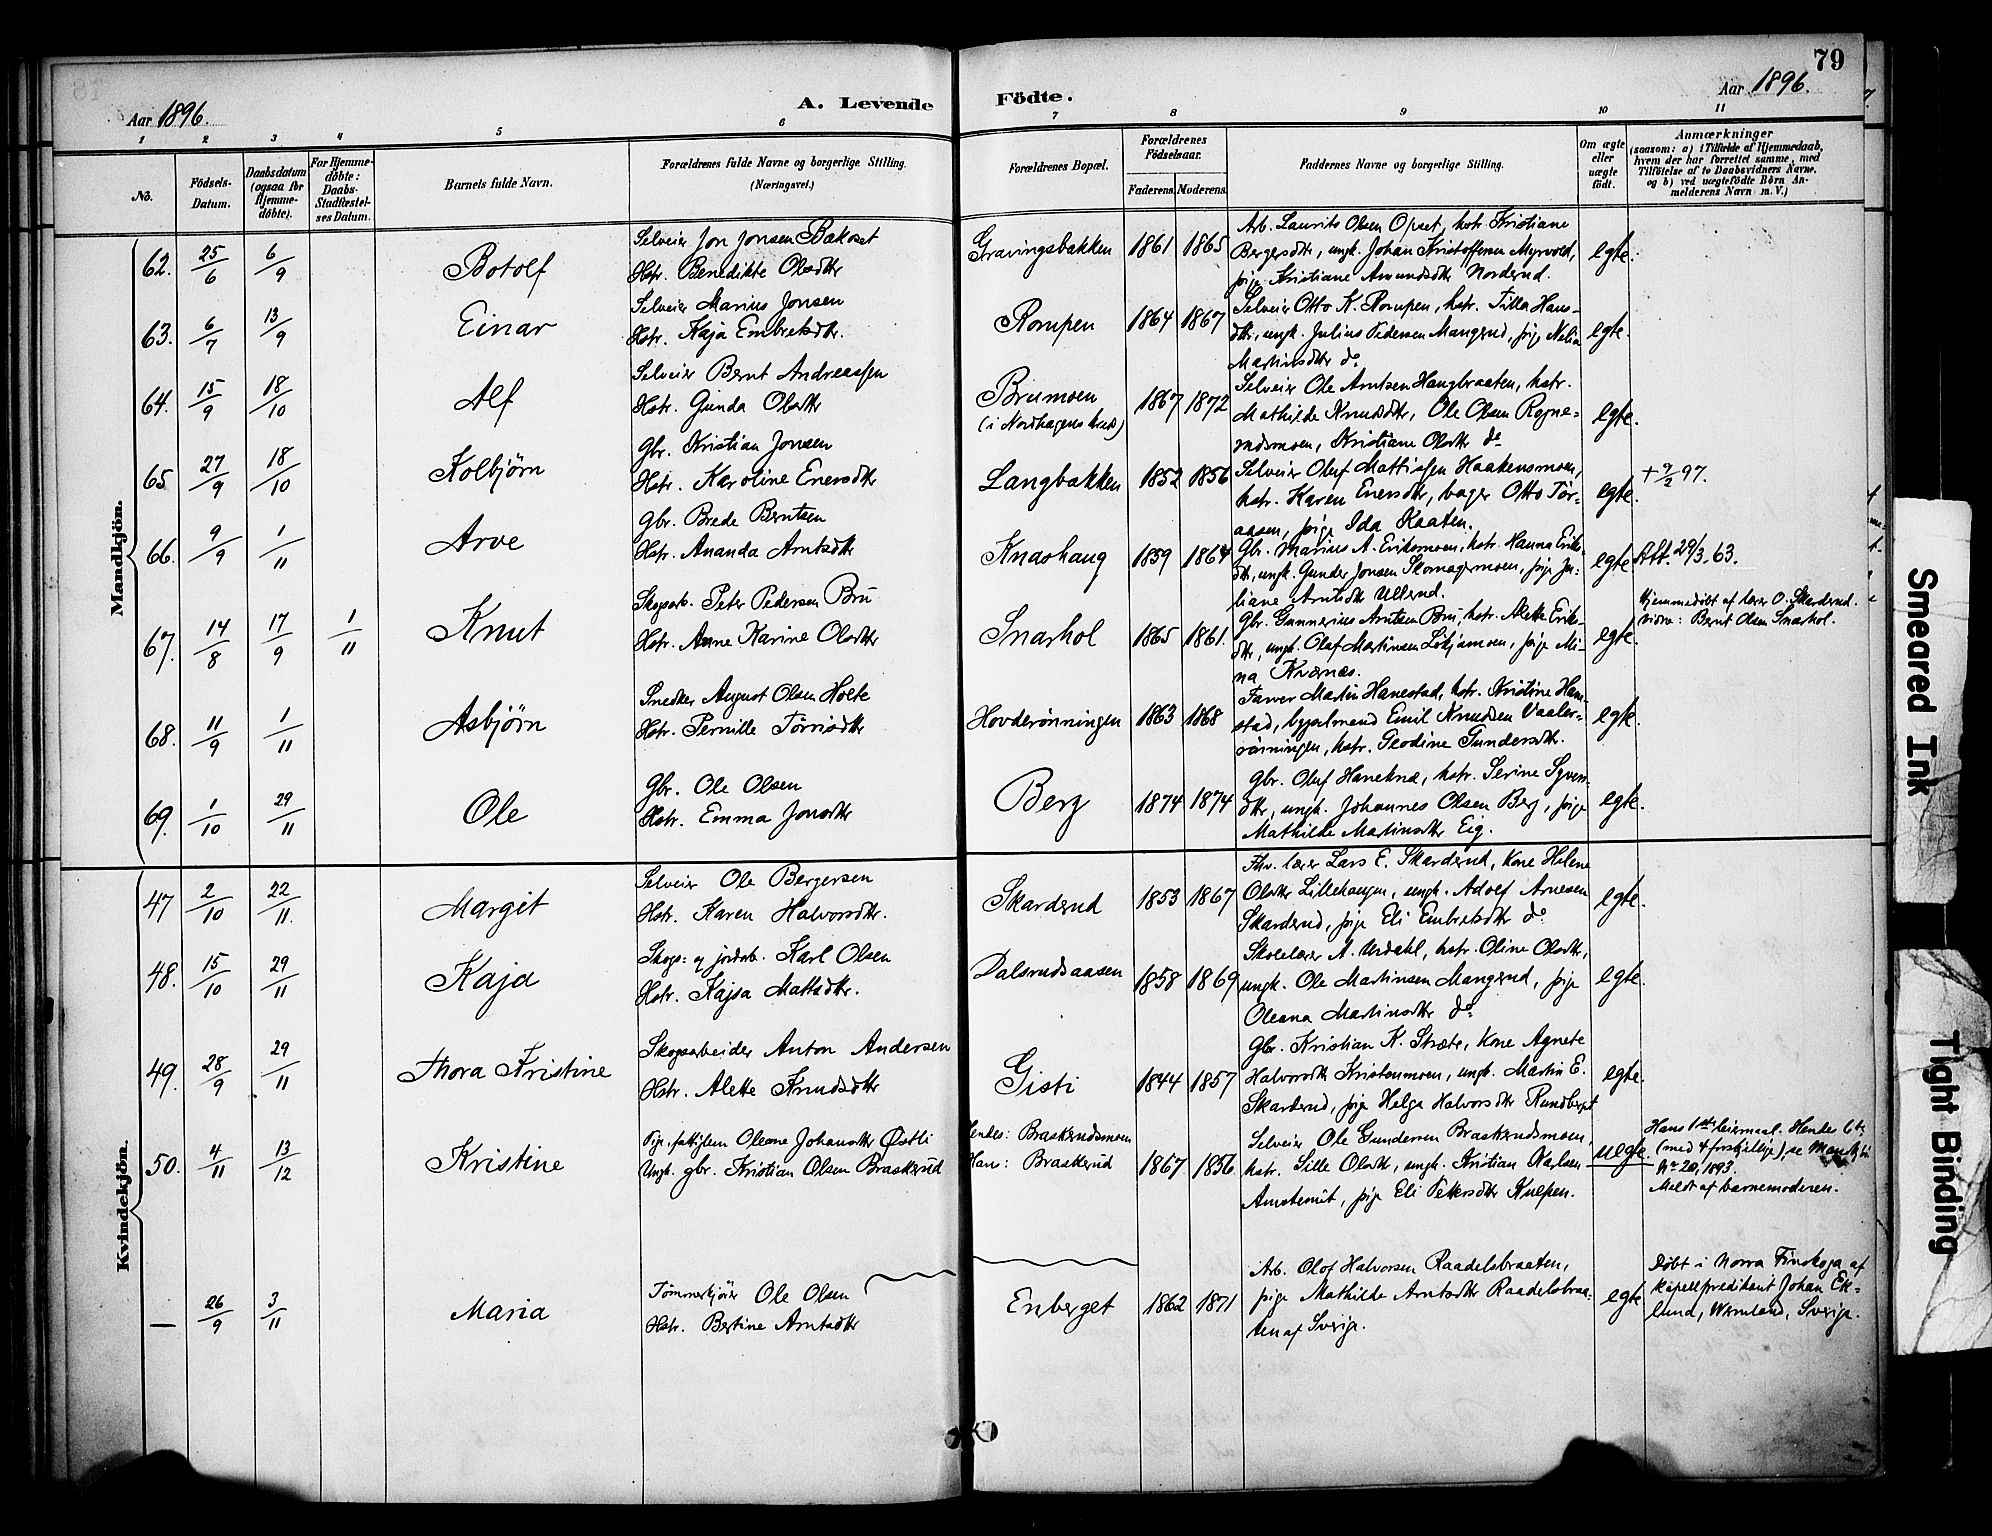 79
Aar 1896.
A. Levende Födte.
Aar 1896.
1 2 3 4 5 6 7 8 9 10 11
No.
Födsels-Datum.
Daabsdatum (ogsaa for Hjemme-döbte).
For Hjemme-döbte: Daabs-Stadfæstel-ses Datum.
Barnets fulde Navn.
Forældrenes fulde Navne og borgerlige Stilling.
(Næringsvei.)
Forældrenes Bopæl.
Forældrenes Födselsaar.
Faderens. Moderens.
Faddernes Navne og borgerlige Stilling.
Om ægte eller uægte födt.
Anmærkninger
(saasom: a) i Tilfælde af Hjemmedaab,
hvem der har forrettet samme, med
Tilföielse af to Daabsvidners Navne,
og b) ved uægtefödte Börn An-
melderens Navn m. V.)
Mandkjön.
62. 25/6 6/9 Botolf
Selveier Jon Jonsen Bækoset
Hstr. Benedikte Olsdtr
Gravingsbakken 1861 1865
Arb. Laurits Olsen Opset, hstr. Kristiane
Bergersdtr, ungk. Johan Kristoffersen Myrvold,
pige Kristiane Amundsdtr Norderud.
egte.
63. 6/7 13/9 Einar
Selveier Marius Jonsen
Hstr. Kaja Embretsdtr.
Rompen 1864 1867
Selveier Otto K. Rompen, hstr. Tilla Hans-
dtr, ungk. Julius Pedersen Mangrud, pige Nelia
Martinsdtr do
egte.
64. 15/9 18/10 Alf
Selveier Bernt Andreassen
Hstr. Gunda Olsdtr
Brumoen
(i Nordhagens hus) 1867 1872
Selveier Ole Arntsen Haugbraaten, hstr.
Mathilde Knudsdtr, Ole Olsen Rogne-
rudsmoen, Kristiane Olsdtr do
egte.
65. 27/9 18/10 Kolbjörn
Gbr. Kristian Jonsen
Hstr. Karoline Enersdtr
Langbakken 1852 1856
Selveier Oluf Mattissen Haakensmoen,
hstr. Karen Enersdtr, bager Otto Tör-
aasen, pige Ida Kaaten.
egte.
+ 9/2 97.
66. 9/9 1/11 Arve
Gbr. Brede Berntsen
Hstr. Ananda Arntsdtr
Knashaug 1859 1864
Gbr. Marius A. Eriksmoen, hstr. Hanna Eriks-
dtr, ungk. Gunder Jonsen Skomagermoen, pige Ju-
liane Arntsdtr Ullerud.
egte
Att. 29/3. 63.
67. 14/8 17/9 1/11 Knut
Skogsarb. Peter Pedersen Bru
Hstr. Anne Karine Olsdtr
Snarhol 1865 1861.
Gbr. Gunnerius Arntsen Bru, hstr. Alette Eriks-
dtr, ungk. Olaf Martinsen Lökjamoen, pige Mi-
na Kværnæs.
egte.
Hjemmedöbt af lærer O. Skarderud.
vidne: Bernt Olsen Snarhol.
68. 11/9 1/11 Asbjörn
Snedker August Olsen Holte
Hstr. Pernille Törrisdtr
Hovderönningen 1863 1868
Farver Martin Hanestad, hstr. Kristine Hane-
stad, bygselmand Emil Knudsen Vaaler-
rönningen, hstr. Gundersdtr.
egte.
69. 1/10 29/11 Ole
Gbr. Ole Olsen
Hstr. Emma Jonsdtr
Berg 1874 1874
Gbr. Oluf Hanekne, hstr. Serine Syvers-
dtr, ungk. Johannes Olsen Berg, pige
Mathilde Martinsdtr Eig.
egte.
Kvindekjön.
47 2/10 22/11. Margit
Selveier Ole Bergersen
Hstr. Karen Halvorsdtr.
Skarderud 1853 1867
Fhv. lærer Lars E. Skarderud, Kone Helene
Olsdtr Lillehaugen, ungk. Adolf Arnesen
Skarderud, pige Eli Embretsdtr do
egte.
48. 15/10 29/11 Kaja
Skogs- og jordarb. Karl Olsen
Hstr. Kajsa Mattsdtr.
Dalsrudsaasen 1858 1869
Skolelærer A. Urdahl, hstr. Oline Olsdtr,
ungk. Ole Martinsen Mangrud, pige
Oleana Martinsdtr do
egte.
49. 28/9 29/11 Thora Kristine
Skogsarbeider Anton Andersen
Hstr. Alette Knudsdtr
Gisti 1844 1857
Gbr. Kristian K. Stræte, Kone Agnete
Halvorsdtr Kristenmoen, ungk. Martin E.
Skarderud, pige Helga Halvorsdtr Rundberget
egte.
50. 4/11 13/12 Kristine
Pige, fattiglem Oleane Johansdtr Østli
Ungk. gbr. Kristian Olsen Braskerud
Hendes: Braskerudsmoen
Hans: Braskerud 1867 1856
Selveier Ole Gundersen Braskerudsmoen,
hstr. Sille Olsdtr, ungk. Kristian Karlsen
pige Eli Pettersdtr Kulpen.
uegte.
Hans 1ste leiermaal. Hendes 6te
(med 4 forskjellige), se Mandkjön
No 20, 1893.
Meldt af barnemoderen.
— 26/9 3/11 Maria
Tömmerkjörer Ole Olsen
Hstr. Bertine Arntsdtr
Enberget 1862 1871
Arb. Olof Halvorsen Raadelsbraaten,
pige Mathilde Arntsdtr Raadelsbraa-
ten af Sverige.
egte
Döbt i Norra Finskoga af
kapellpredikant Johan Ek-
lund, Wermland, Sverige.
Smeared Ink
Tight Binding